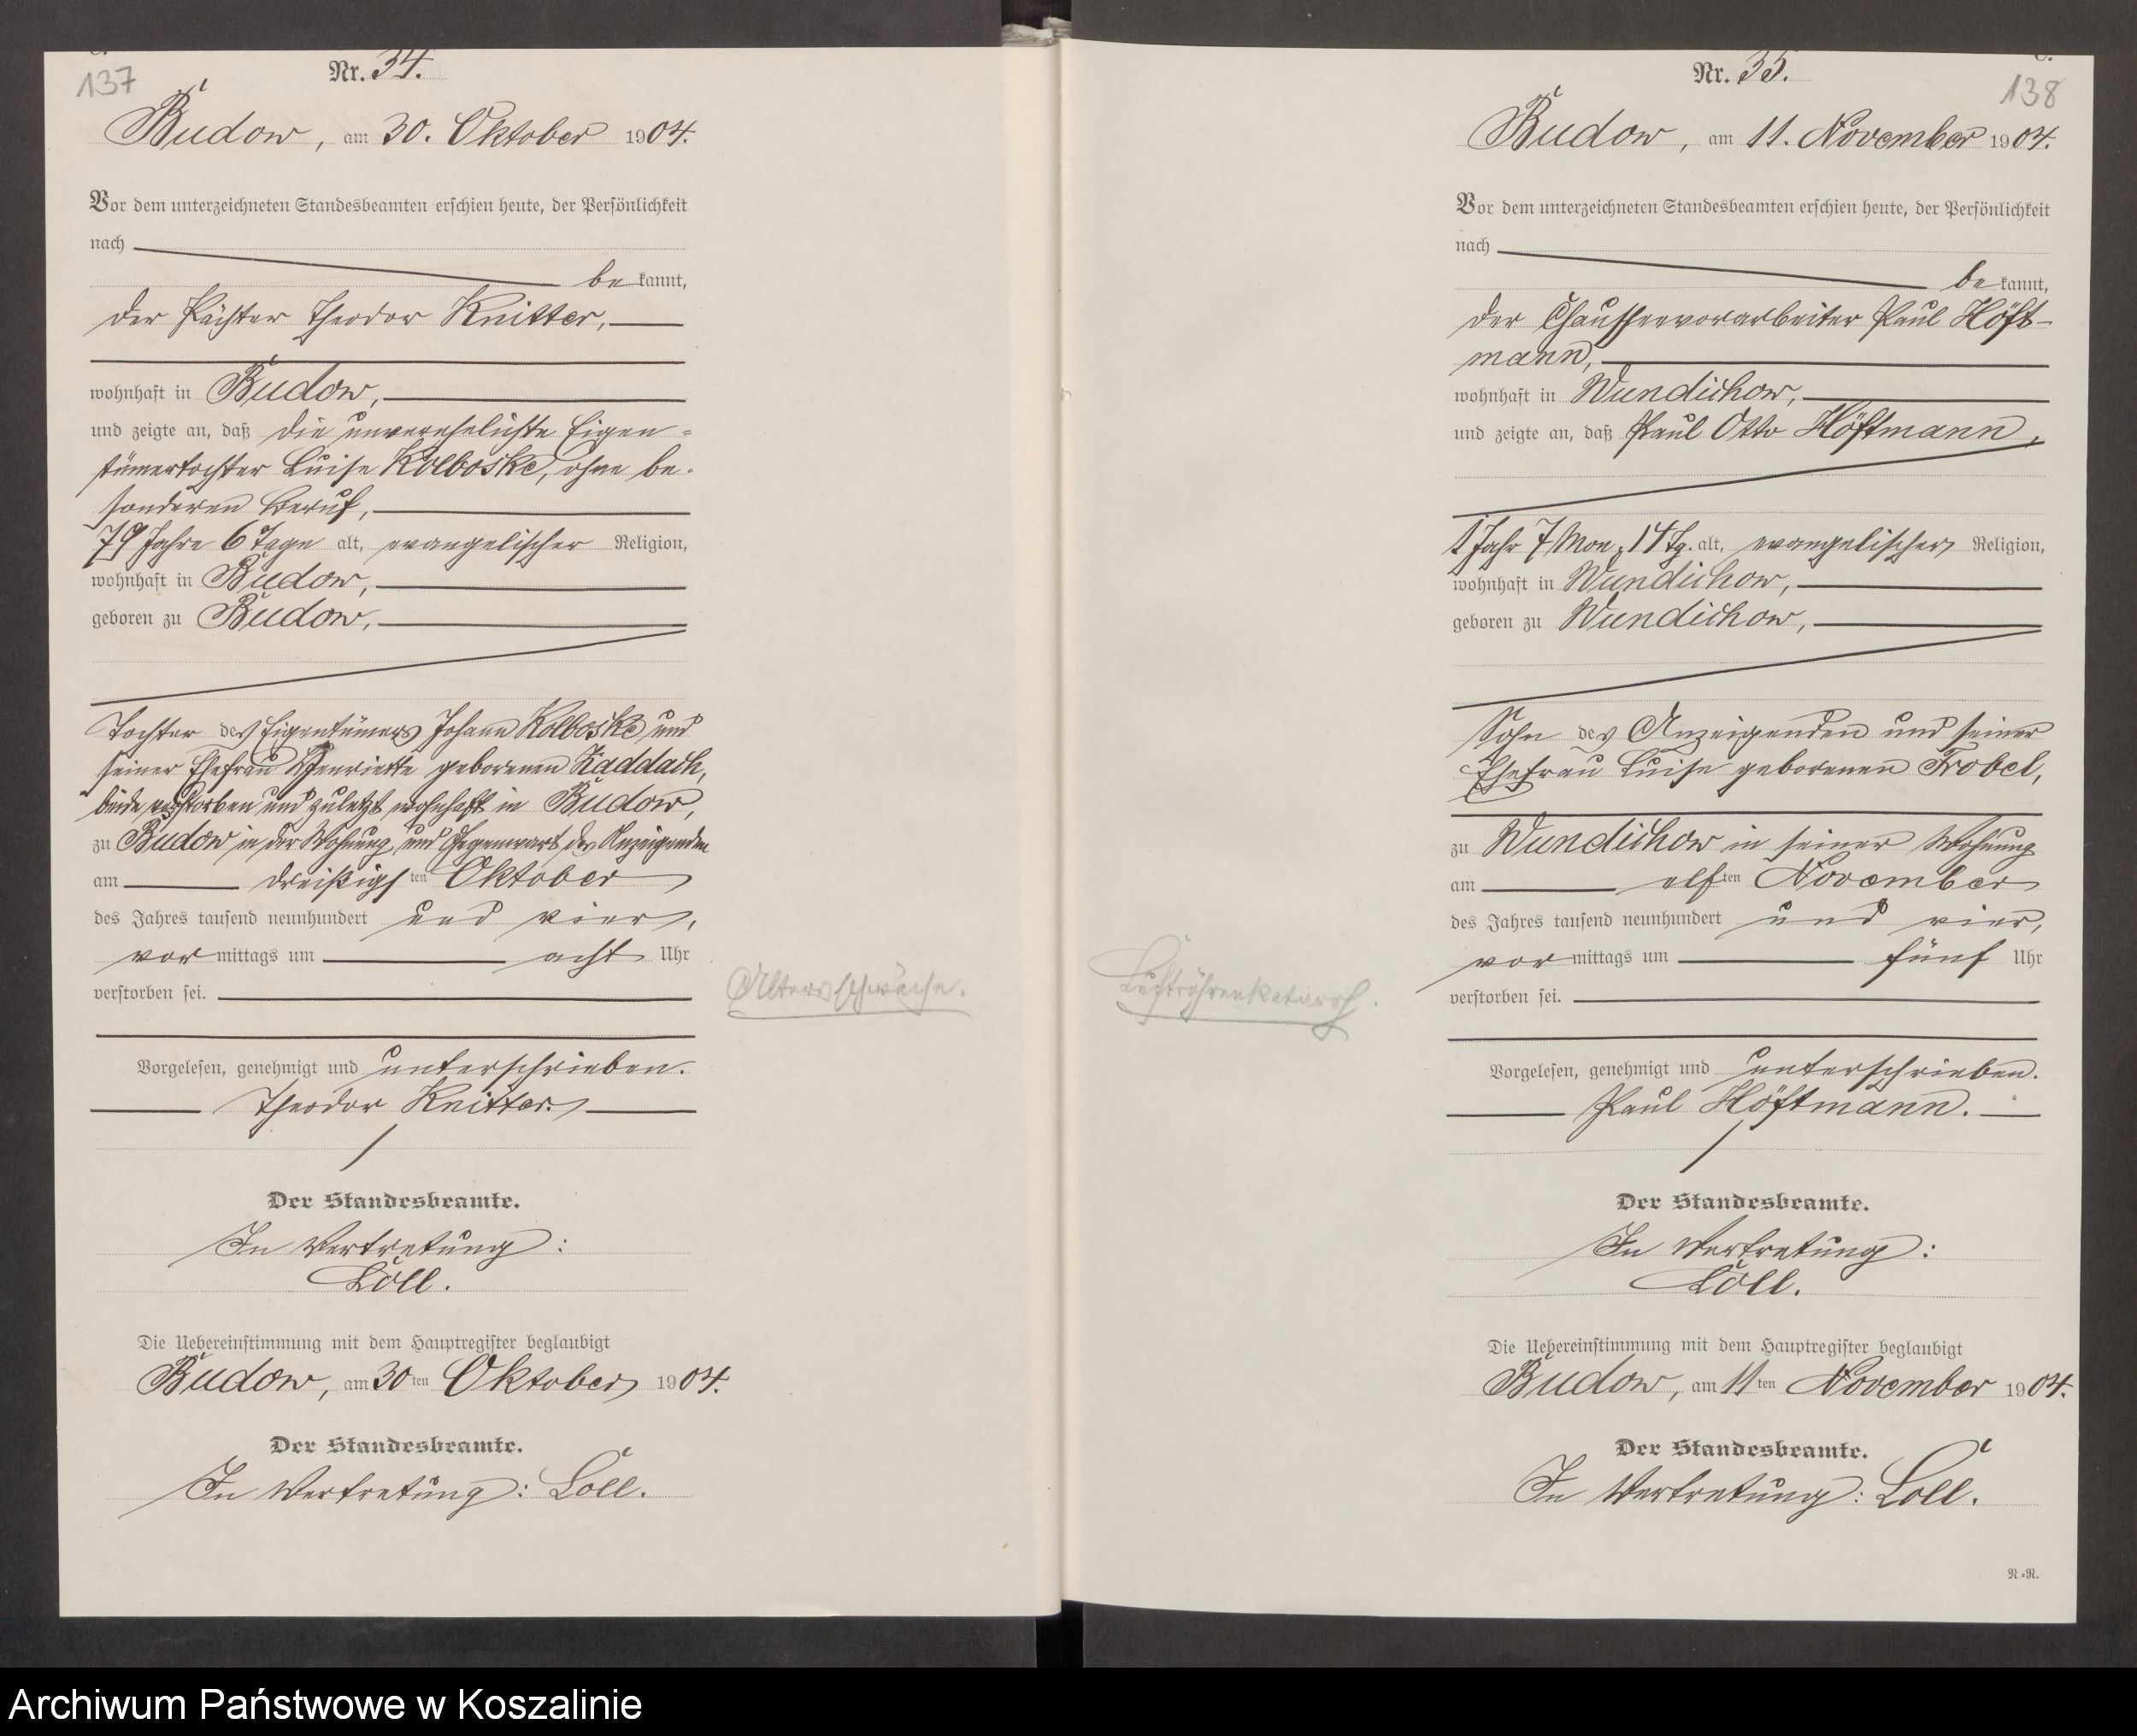 137
Nr. 34.
Budow, am 30. Oktober 1904.
Vor dem unterzeichneten Standesbeamten erschien heute, der Persönlichkeit
nach
be kannt,
der Pächter Theodor Knitter,
wohnhaft in Budow,
und zeigte an, daß die unverehelichte Eigen=
tümertochter Luise Kolboske, ohne be-
sonderen Beruf,
79 Jahre 6 Tage alt, evangelischer Religion,
wohnhaft in Budow,
geboren zu Budow,
Tochter des Eigentümers Johann Kolboske und
seiner Ehefrau Henriette geborenen Kaddach,
beide verstorben und zuletzt wohnhaft in Budow,
zu Budow in der Wohnung und Gegenwart des Anzeigenden
am dreißigsten Oktober
des Jahres tausend neunhundert und vier,
vor mittags um acht Uhr
verstorben sei.
Altersschwäche.
Vorgelesen, genehmigt und unterschrieben.
Theodor Knitter.
Der Standesbeamte.
In Vertretung:
Loll.
Die Uebereinstimmung mit dem Hauptregister beglaubigt
Budow, am 30ten Oktober 1904.
Der Standesbeamte.
In Vertretung: Loll.
Nr. 35.
138
Budow, am 11. November 1904.
Vor dem unterzeichneten Standesbeamten erschien heute, der Persönlichkeit
nach
be kannt,
der Chausseevorarbeiter Paul Höft-
mann,
wohnhaft in Wundichow,
und zeigte an, daß Paul Otto Höftmann,
1 Jahr 7 Mon. 14 Tg. alt, evangelischer Religion,
wohnhaft in Wundichow,
geboren zu Wundichow,
Sohn des Anzeigenden und seiner
Ehefrau Luise geborenen Frobel,
zu Wundichow in seiner Wohnung
am elften November
des Jahres tausend neunhundert und vier,
vor mittags um fünf Uhr
verstorben sei.
Luftröhrenkatarrh.
Vorgelesen, genehmigt und unterschrieben.
Paul Höftmann.
Der Standesbeamte.
In Vertretung:
Loll.
Die Uebereinstimmung mit dem Hauptregister beglaubigt
Budow, am 11ten November 1904.
Der Standesbeamte.
In Vertretung: Loll.
N.=N.
Archiwum Państwowe w Koszalinie